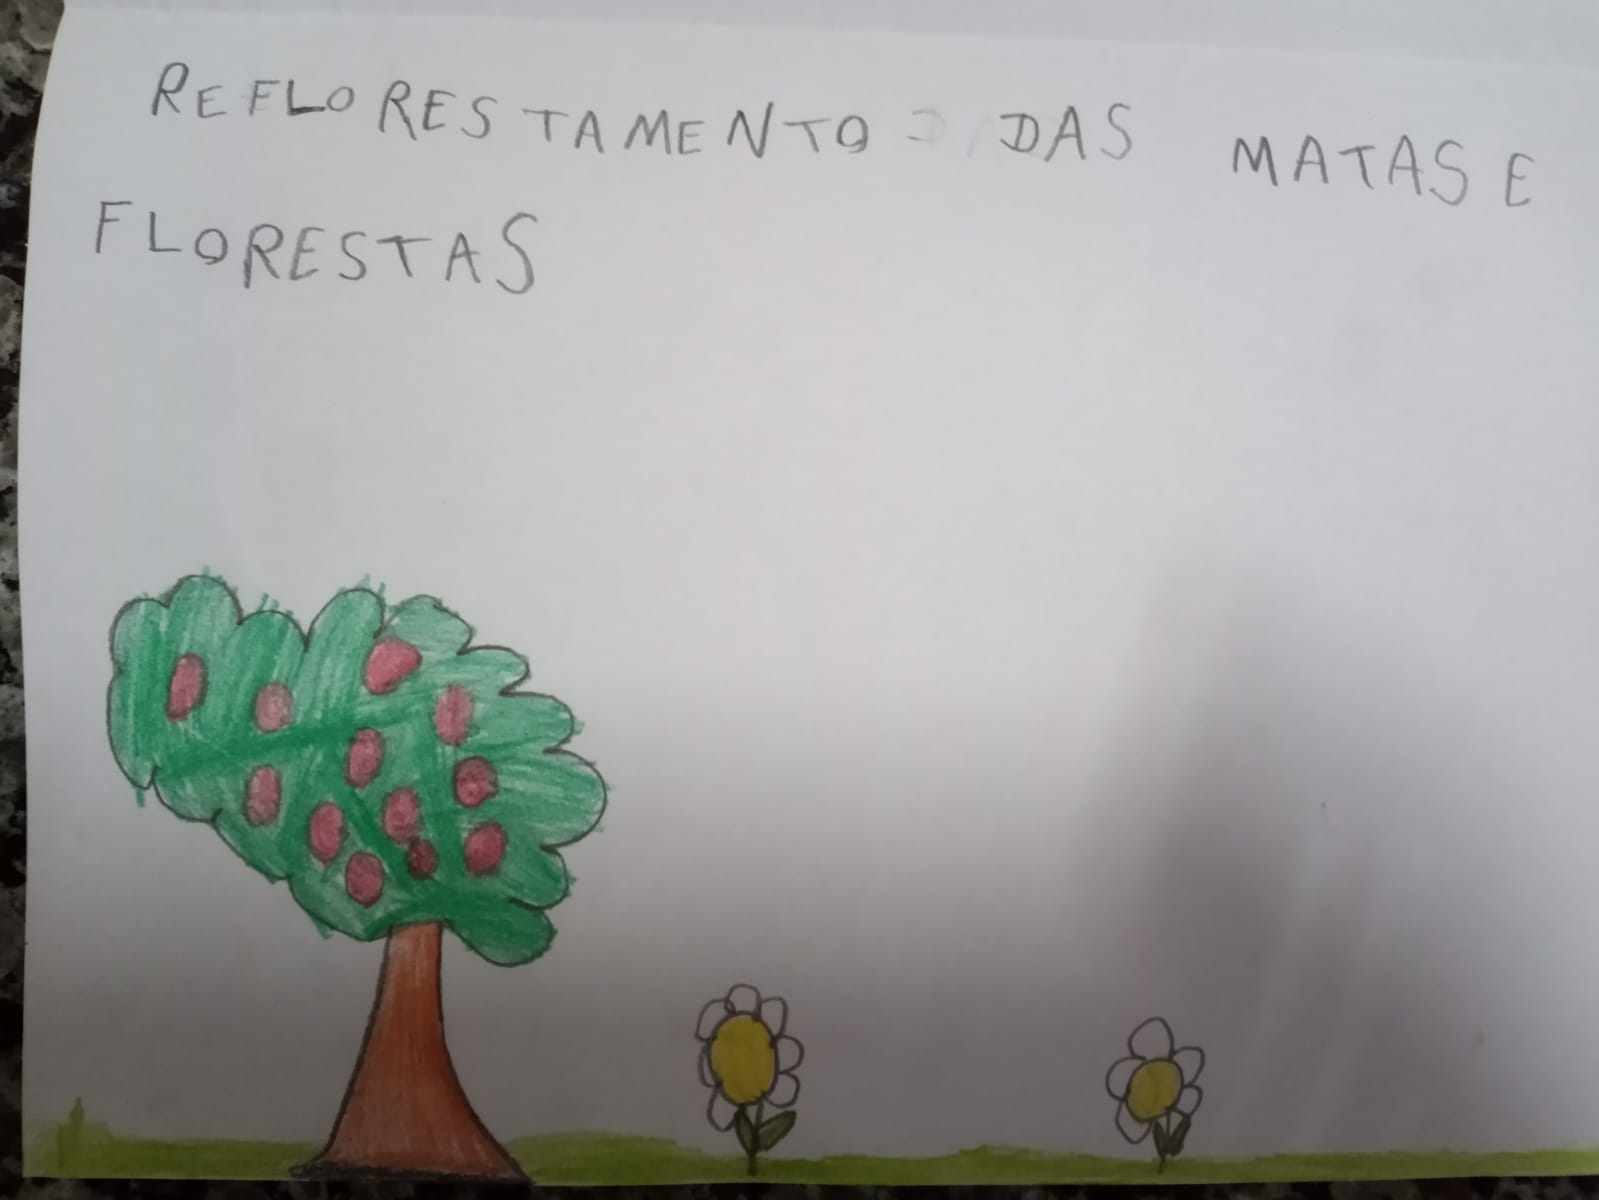 REFLORESTAMENTO DAS MATAS E
FLORESTAS